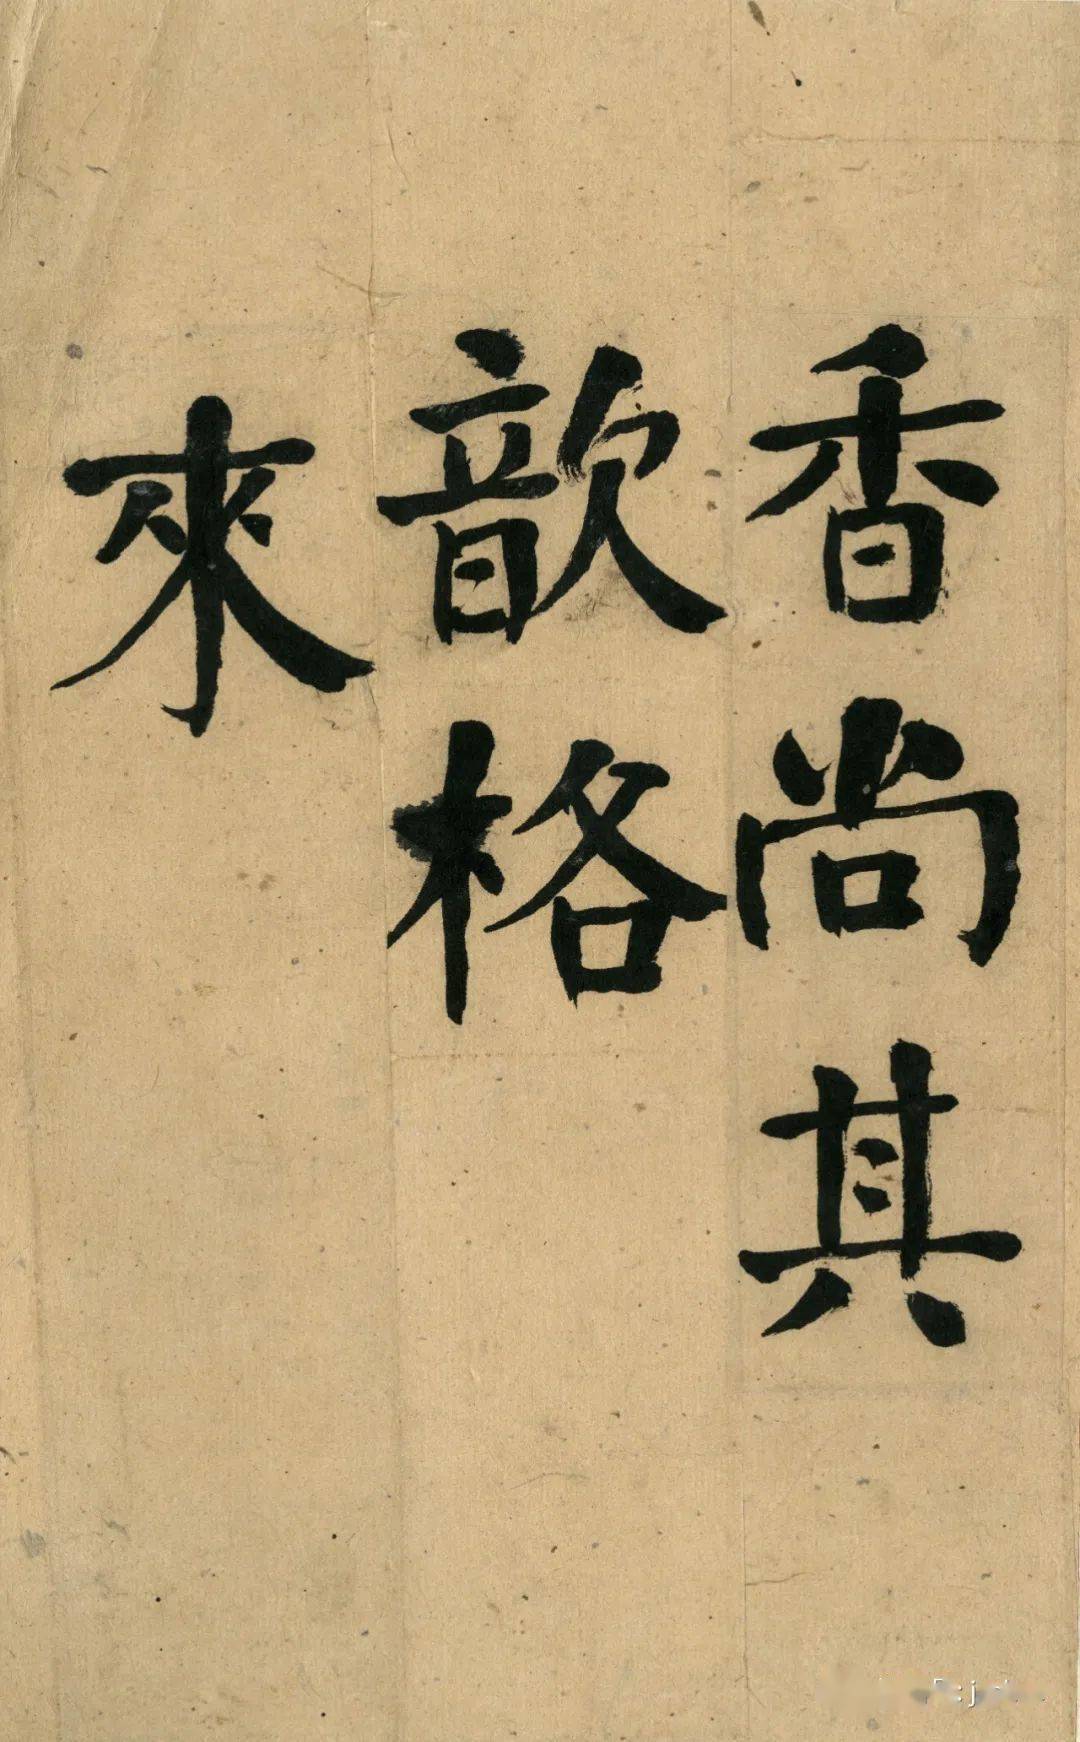 香尚其
歆格
來